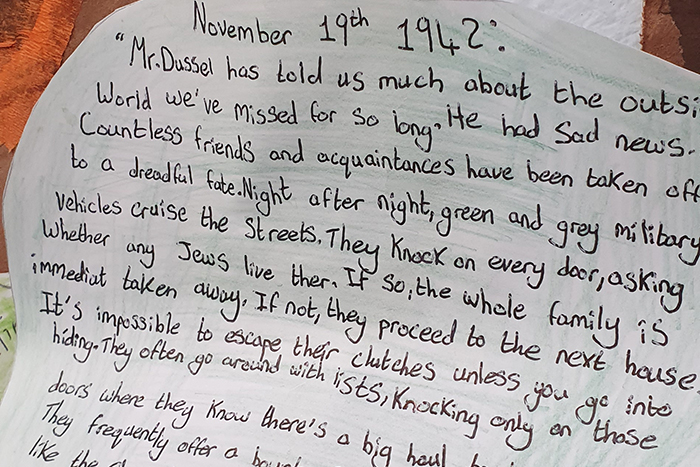 November 19th 1942:
"Mr. Dussel has told us much about the outsi
World we've missed for so long. He had Sad news.
Countless friends and acquaintances have been taken off
to a dreadful fate. Night after night, green and grey military
vehicles cruise the streets. They Knock on every door, asking
Whether any Jews live ther. If So, the whole family is
immediat taken away. If not, they proceed to the next house.
It's impossible to escape their clutches unless you go into
hiding. They often go around with lists, Knocking only on those
doors where they Know there's a big haul
They frequently offer a
like the